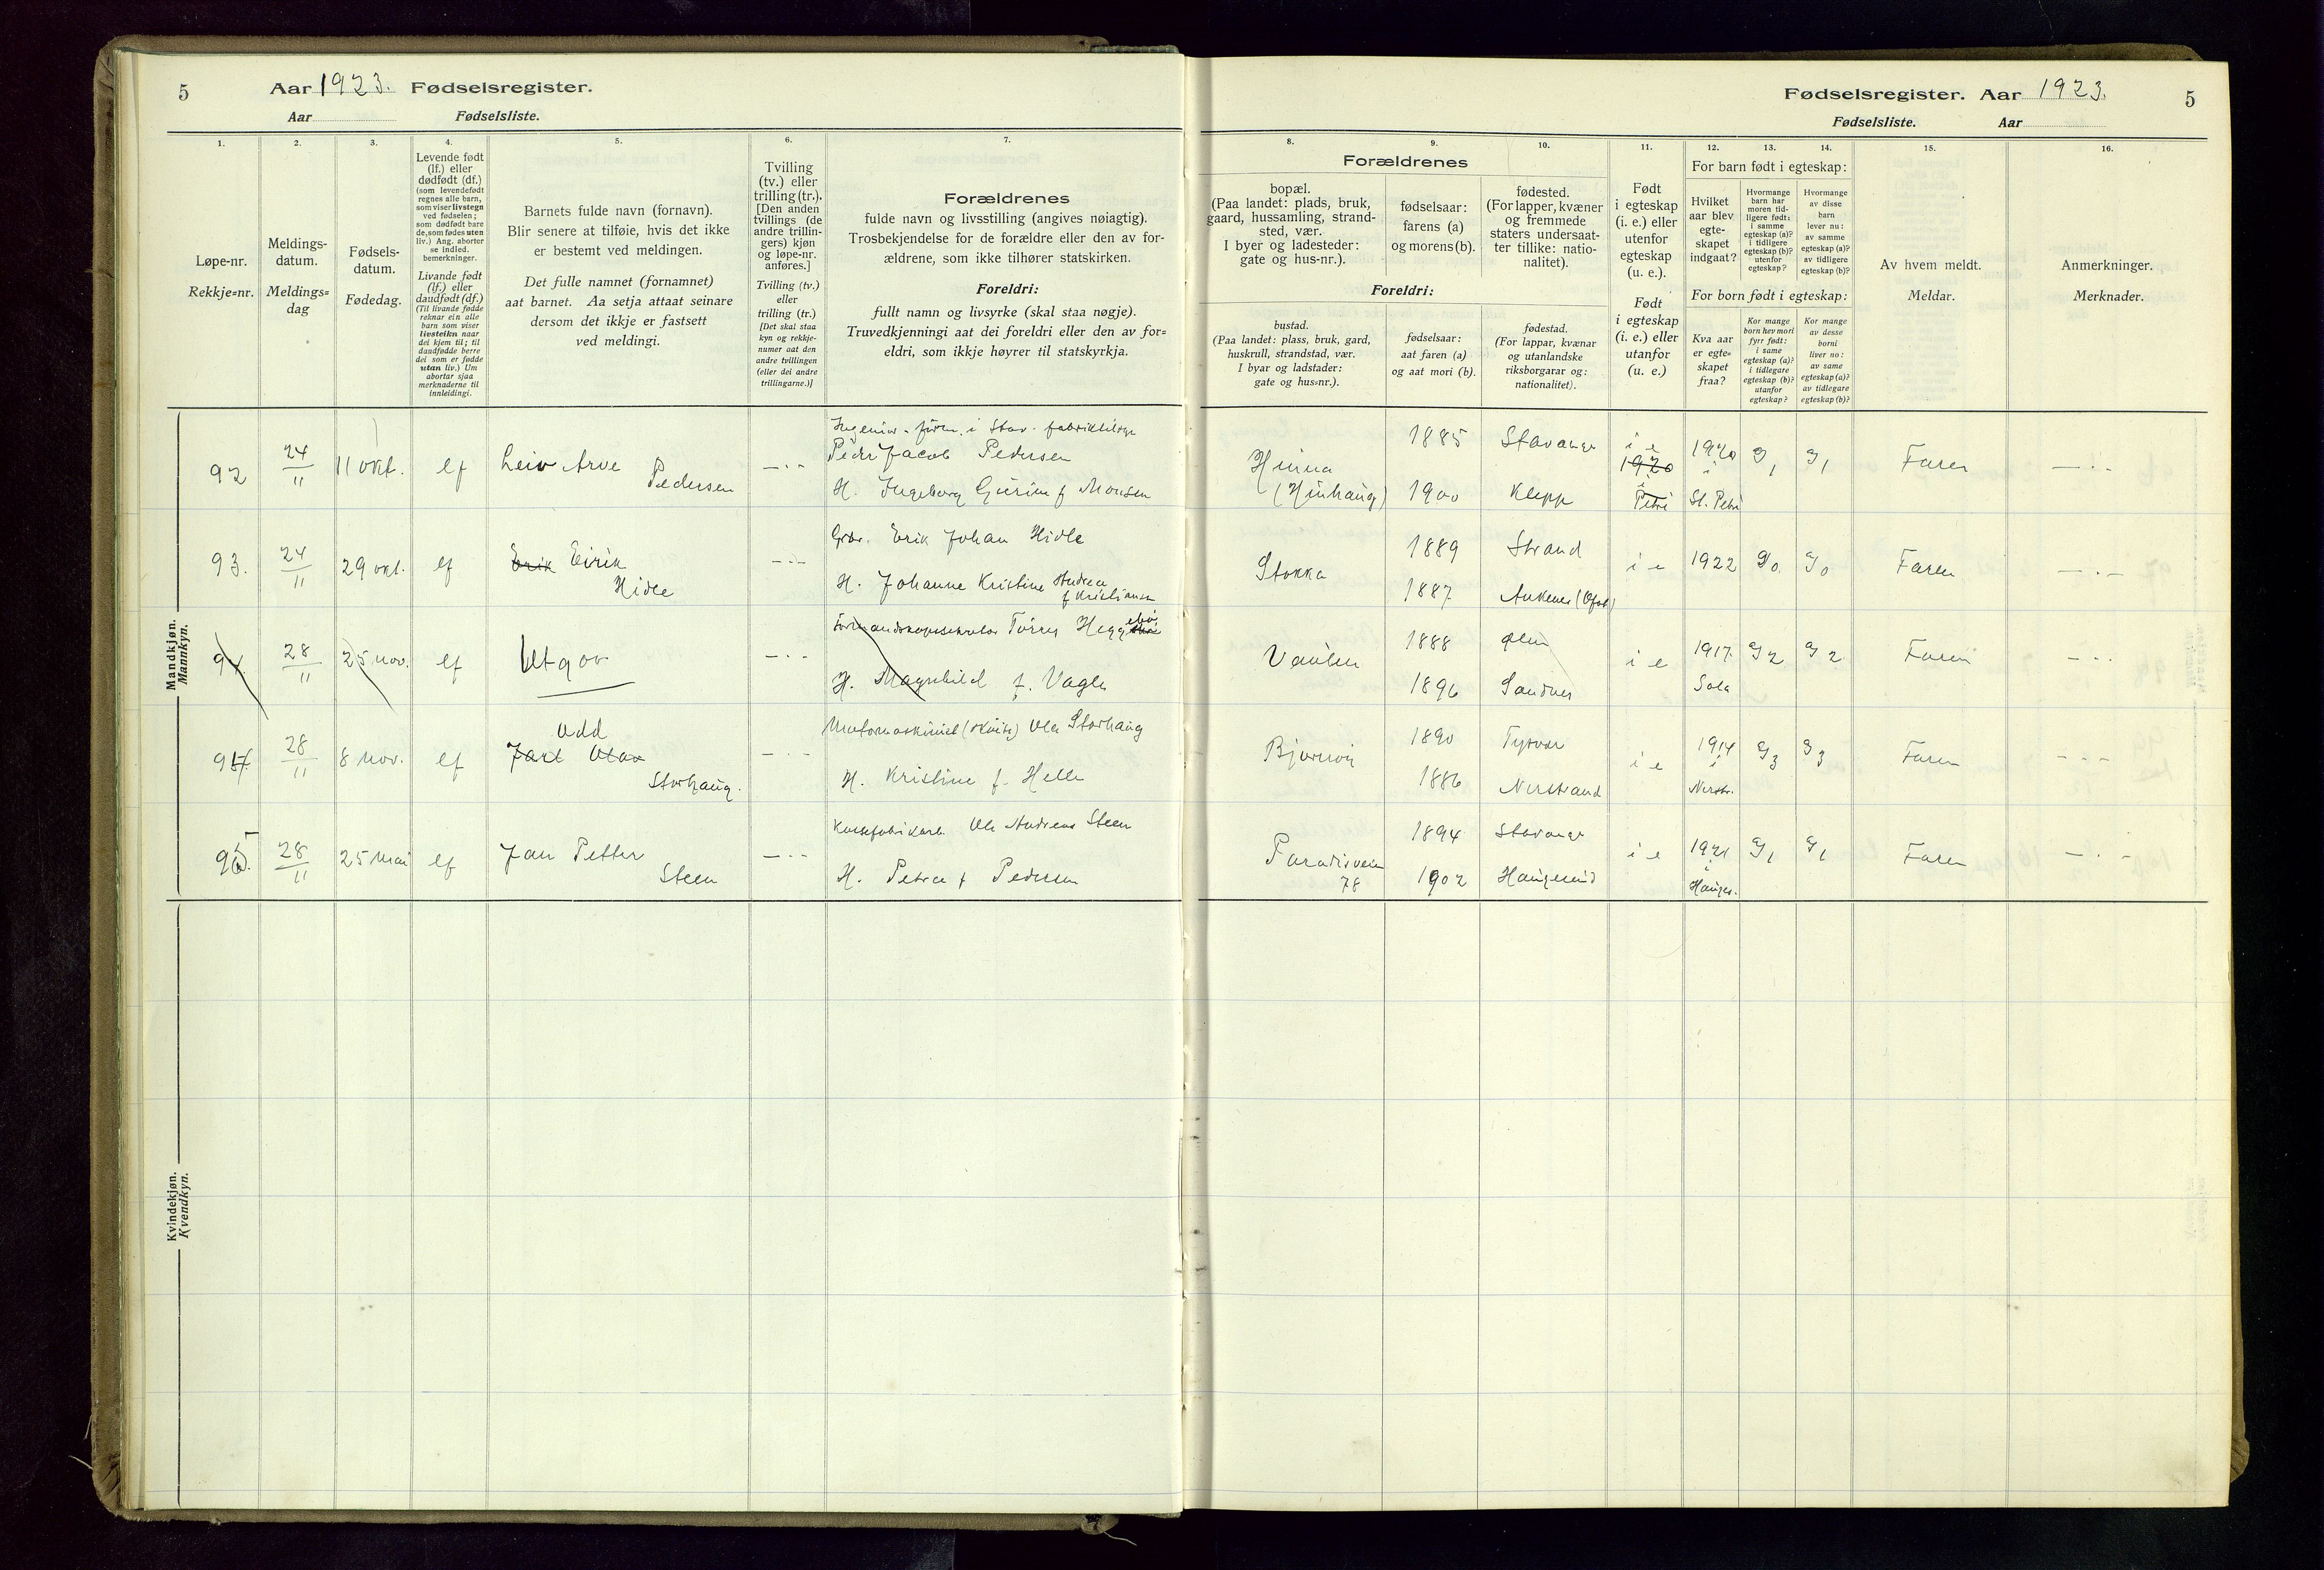 5
Aar 1923. Fødselsregister.
Aar Fødselsliste.
1.
Løpe-nr.
Rekkje=nr.
2.
Meldings-
datum.
Meldings=
dag
3.
Fødsels-
datum.
Fødedag.
4.
Levende født
(lf.) eller
dødfødt (df.)
(som levendefødt
regnes alle barn,
som viser livstegn
ved fødselen;
som dødfødt bare
de, som fødes uten
liv.) Ang. aborter
se indled.
bemerkninger.
Livande født
(lf.) eller
daudfødt (df.)
(Til livande fødde
reknar ein alle
barn som viser
livsteikn naar
dei kjem til; til
daudfødde berre
dei som er fødde
utan liv.) Um
abortar sjaa
merknaderne til
innleidingi.
5.
Barnets fulde navn (fornavn).
Blir senere at tilføie, hvis det ikke
er bestemt ved meldingen.
Det fulle namnet (fornamnet)
aat barnet. Aa setja attaat seinare
dersom det ikkje er fastsett
ved meldingi.
6.
Tvilling
(tv.) eller
trilling (tr.).
[Den anden
tvillings (de
andre trillin-
gers) kjøn
og løpe-nr.
anføres.]
Tvilling (tv.)
eller
trilling (tr.)
[Det skal staa
kyn og rekkje-
numer aat den
andre tvillingen
(eller dei andre
trillingarne.)]
7.
Forældrenes
fulde navn og livsstilling (angives nøiagtig).
Trosbekjendelse for de forældre eller den av for-
ældrene, som ikke tilhører statskirken.
Foreldri:
fullt namn og livsyrke (skal staa nøgje).
Truvedkjenningi aat dei foreldri eller den av for=
eldri, som ikkje høyrer til statskyrkja.
Fødselsregister. Aar 1923.
5
Fødselsliste. Aar
Forældrenes
8.
bopæl.
(Paa landet: plads, bruk,
gaard, hussamling, strand-
sted, vær.
I byer og ladesteder:
gate og hus-nr.).
9.
fødselsaar:
farens (a)
og morens (b).
10.
fødested.
(For lapper, kvæner
og fremmede
staters undersaat-
ter tillike: natio-
nalitet).
Foreldri:
bustad.
(Paa landet: plass, bruk, gard,
huskrull, strandstad, vær.
I byar og ladstader:
gate og hus=nr.).
fødselsaar:
aat faren (a)
og aat mori (b).
fødestad.
(For lappar, kvænar
og utanlandske
riksborgarar og:
nationalitet).
11.
Født
i egteskap
(i. e.) eller
utenfor
egteskap
(u. e.).
Født
i egteskap
(i. e.) eller
utanfor
(u. e.)
For barn født i egteskap:
12.
Hvilket
aar blev
egte-
skapet
indgaat?
13.
Hvormange
barn har
moren tid-
ligere født:
i samme
egteskap (a)?
i tidligere
egteskap (b)?
utenfor
egteskap?
14.
Hvormange
av disse
barn
lever nu:
av samme
egteskap (a)?
av tidligere
egteskap (b)?
For born født i egteskap:
Kva aar
er egte=
skapet
fraa?
Kor mange
born hev mori
fyrr født:
i same
egteskap (a)?
i tidlegare
egteskap (b)?
utanfor
egteskap?
Kor mange
av desse
borni
liver no:
av same
egteskap (a)?
av tidlegare
egteskap (b)?
15.
Av hvem meldt.
Meldar.
16.
Anmerkninger.
Merknader.
Mandkjøn.
Mannkyn.
92 24/11 11 okt. lf Leiv Arve
Pedersen
Peder Jacob Pedersen
H. Ingeborg Gurine f Monsen
Hinna
(Hinhaug)
1885 Stavanger
1900 Klepp
i e
1920
i
Petri
1920
i
St. Petri
Faren
93. 24/11 29 okt. lf Erik Eirik
Hidle
Gbr. Erik Johan Hidle
H. Johanne Kristine Andrea
f Kristiansen
Stokka
1889 Strand
1887
i e 1922 Faren
94. 28/11 25 nov. lf Utgår
H. Magnhild f. Vagle
Vaulen
1888 Ølen
1896 Sandnes
i e 1917
Sola
Faren
94 28/11 8 nov. lf Odd
Jarl Olav
Storhaug.
Ola Storhaug
H. Kristine f. Helle
1890 Tysvær
1886 Nerstrand
i e 1914
i
Nerstr.
Faren
95. 28/11 25 mai lf Jan Petter
Steen
Ole Andreas Steen
H. Petra f Pedersen
Paradisveien
78
1894 Stavanger
1902 Haugesund
i e 1921
i
Hauges.
Faren
Kvindekjøn.
Kvendkyn.